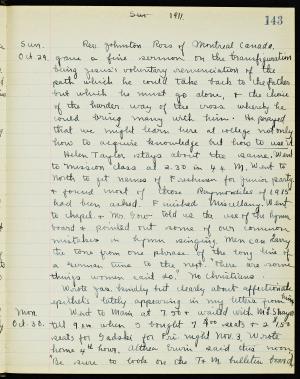 Sun 1911.
143
Sun. Rev. Johnston Ross of Montreal Canada,
Oct. 29. gave a fine sermon on the transfiguration
being Jesus's voluntary renunciation of the
path which he could take back to the Father
but which he must go alone, & the choice
of the harder way of the cross whereby he
could bring many with him. He prayed
that we might learn here at college not only
how to acquire knowledge but how to use it
Helen Taylor stays about the same. Went
to mission class at 2.30 in 4 & M. Went to
North to get names of Freshmen for junior party
& found most of those of 1915
had been asked. Finished Miscellany. Went
to chapel & Mr. Gow told us the use of the hymn
board & pointed out some of our common
mistakes in hymn singing. Men can carry
the tone from one phrase of the long line of
a
things women can't do." No Christians.
Wrote Jas. kindly but clearly about affectionate
epithets lately appearing in my letters from him
Mon. Went to Main at 7.50 & waited with
Oct. 30. till 9 am when I bought 7 $1.00 seats & 2 1.50
seats for Gadski for Fri. night Nov. 3. Wrote
home 4th hour. Althea said this noon
"Be sure to look on the T & M bulletin board